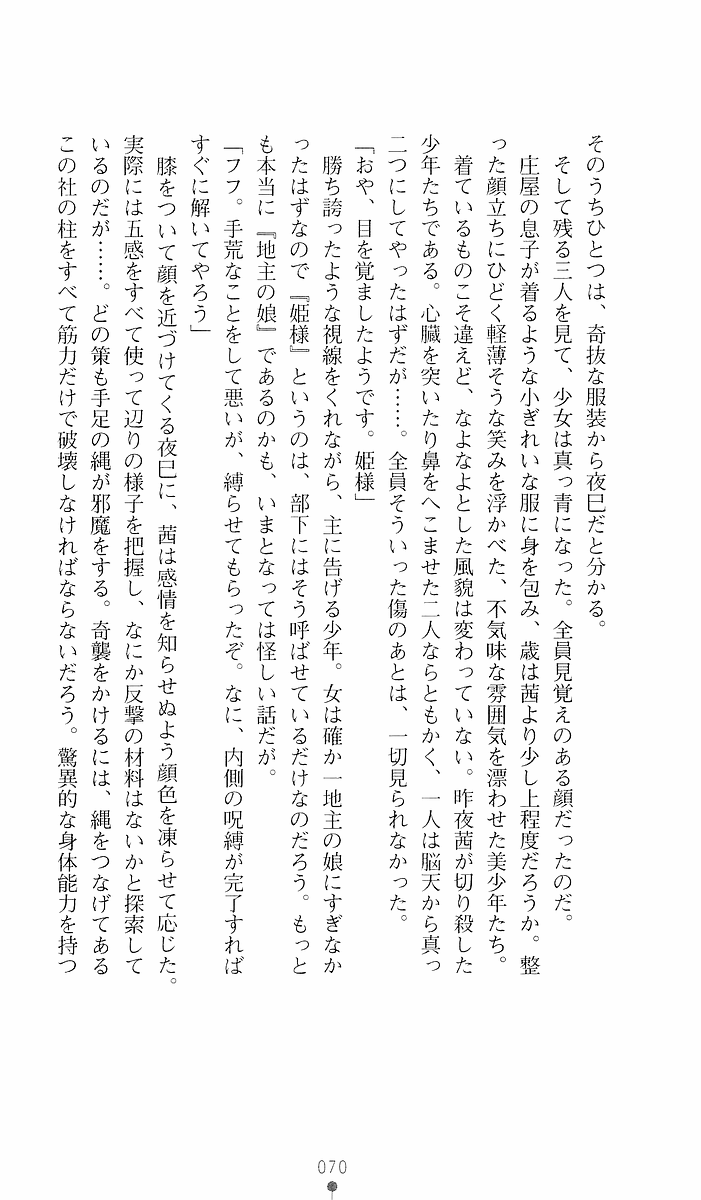 そのうちひとつは、奇抜な服装から夜巳だと分かる。
そして残る三人を見て、少女は真っ青になった。全員見覚えのある顔だったのだ。
庄屋の息子が着るような小ぎれいな服に身を包み、歳は茜より少し上程度だろうか。整
った顔立ちにひどく軽薄そうな笑みを浮かべた、不気味な雰囲気を漂わせた美少年たち。
着ているものこそ違えど、なよなよとした風貌は変わっていない。昨夜茜が切り殺した
少年たちである。心臓を突いたり鼻をへこませた二人ならともかく、一人は脳天から真っ
二つにしてやったはずだが……。全員そういった傷のあとは、一切見られなかった。
「おや、目を覚ましたようです。姫様」
勝ち誇ったような視線をくれながら、主に告げる少年。女は確か一地主の娘にすぎなか
ったはずなので『姫様』というのは、部下にはそう呼ばせているだけなのだろう。もっと
も本当に『地主の娘』であるのかも、いまとなっては怪しい話だが。
「フフ。手荒なことをして悪いが、縛らせてもらったぞ。なに、内側の呪縛が完了すれば
すぐに解いてやろう」
膝をついて顔を近づけてくる夜巳に、茜は感情を知らせぬよう顔色を凍らせて応じた。
実際には五感をすべて使って辺りの様子を把握し、なにか反撃の材料はないかと探索して
いるのだが……。どの策も手足の縄が邪魔をする。奇襲をかけるには、縄をつなげてある
この社の柱をすべて筋力だけで破壊しなければならないだろう。驚異的な身体能力を持つ
070